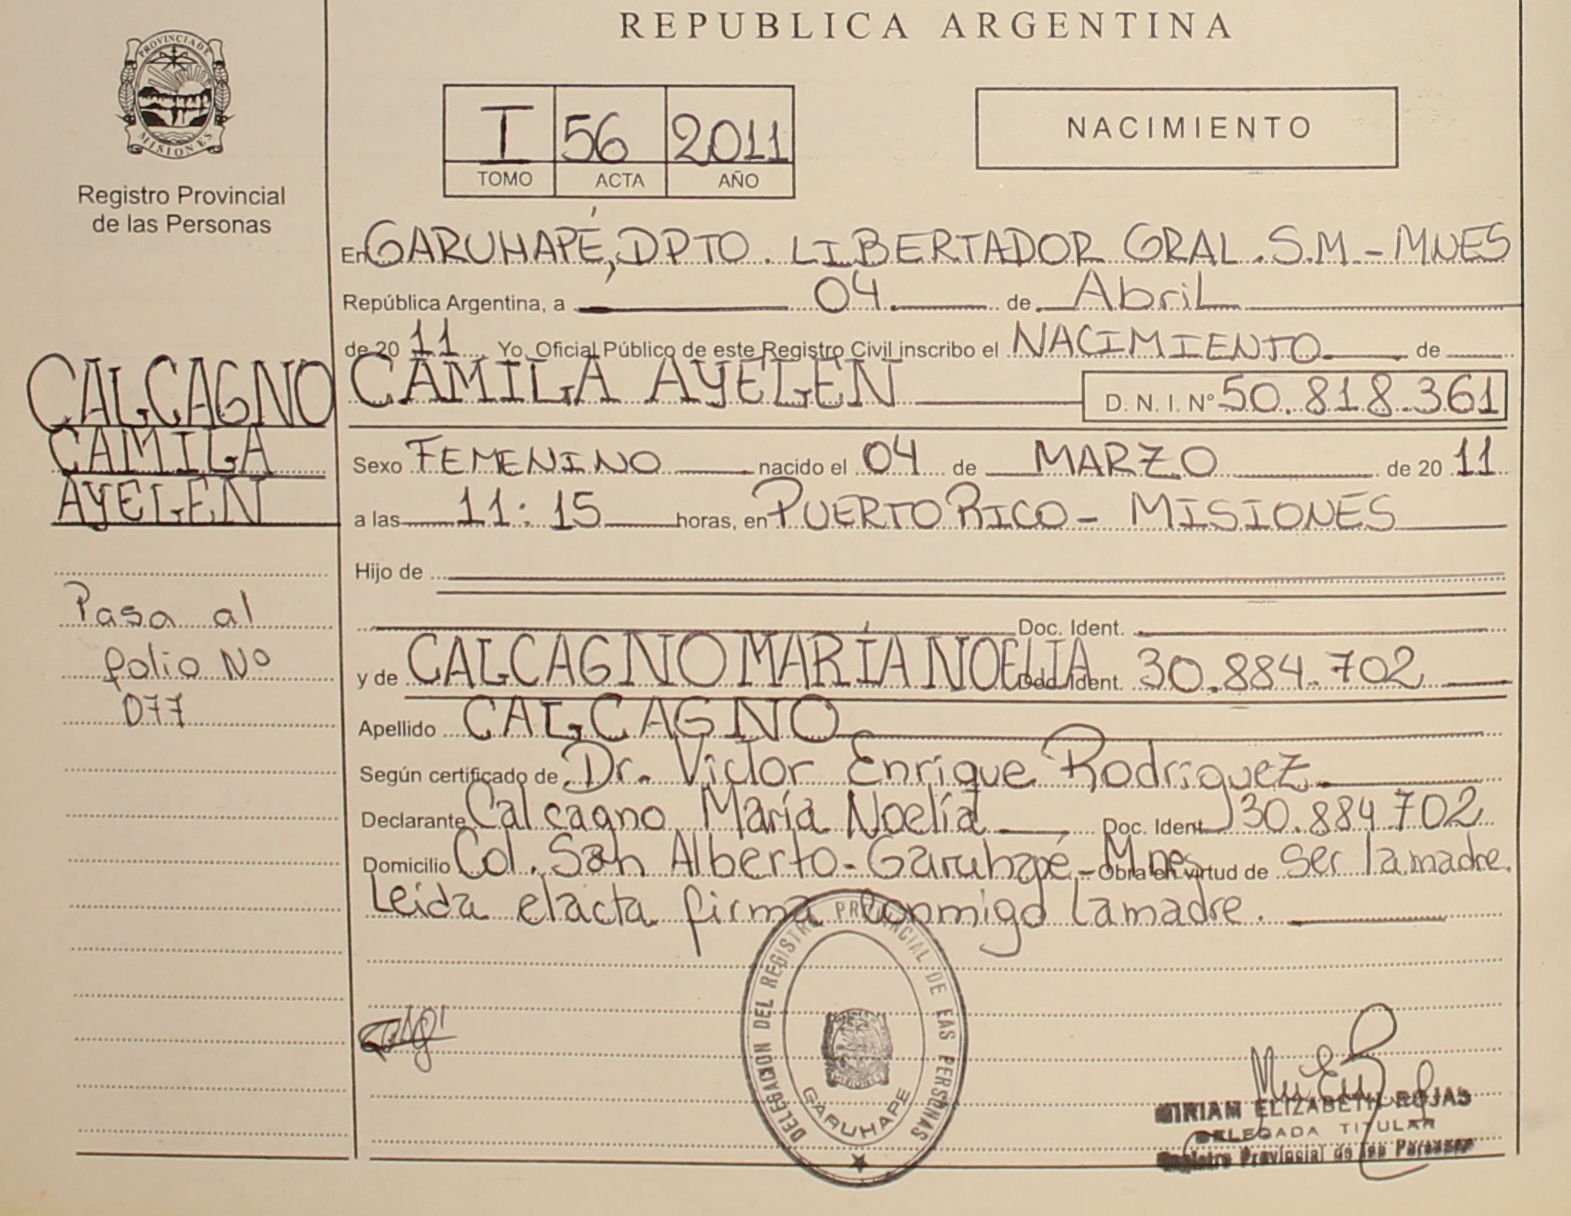 REPUBLICA ARGENTINA
PROVINCIA DE
MISIONES
Registro Provincial
de las Personas
I 56 2011
TOMO ACTA AÑO
NACIMIENTO
En GARUHAPÉ, DPTO. LIBERTADOR GRAL. S.M - MNES
República Argentina, a 04 de Abril
de 20 11 Yo, Oficial Público de este Registro Civil inscribo el NACIMIENTO de
CAMILA AYELEN D. N. I. Nº 50.818.361
CALCAGNO
CAMILA
AYELEN
Sexo FEMENINO nacido el 04 de MARZO de 20 11
a las 11:15 horas, en PUERTO RICO - MISIONES
Hijo de
Doc. Ident.
Pasa al
folio Nº
077
y de CALCAGNO MARÍA NOELIA Doc. Ident. 30.884.702
Apellido CALCAGNO
Según certificado de Dr. Victor Enrique Rodriguez
Declarante Calcagno María Noelia Doc. Ident 30.884.702
Domicilio Col. San Alberto - Garuhapé - Mnes Obra en virtud de ser la madre.
Leida el acta firma conmigo la madre.
DELEGACION DEL REGISTRO PROVINCIAL DE LAS PERSONAS
MISIONES
GARUHAPE
MIRIAM ELIZABETH ROJAS
DELEGADA TITULAR
Registro Provincial de las Personas